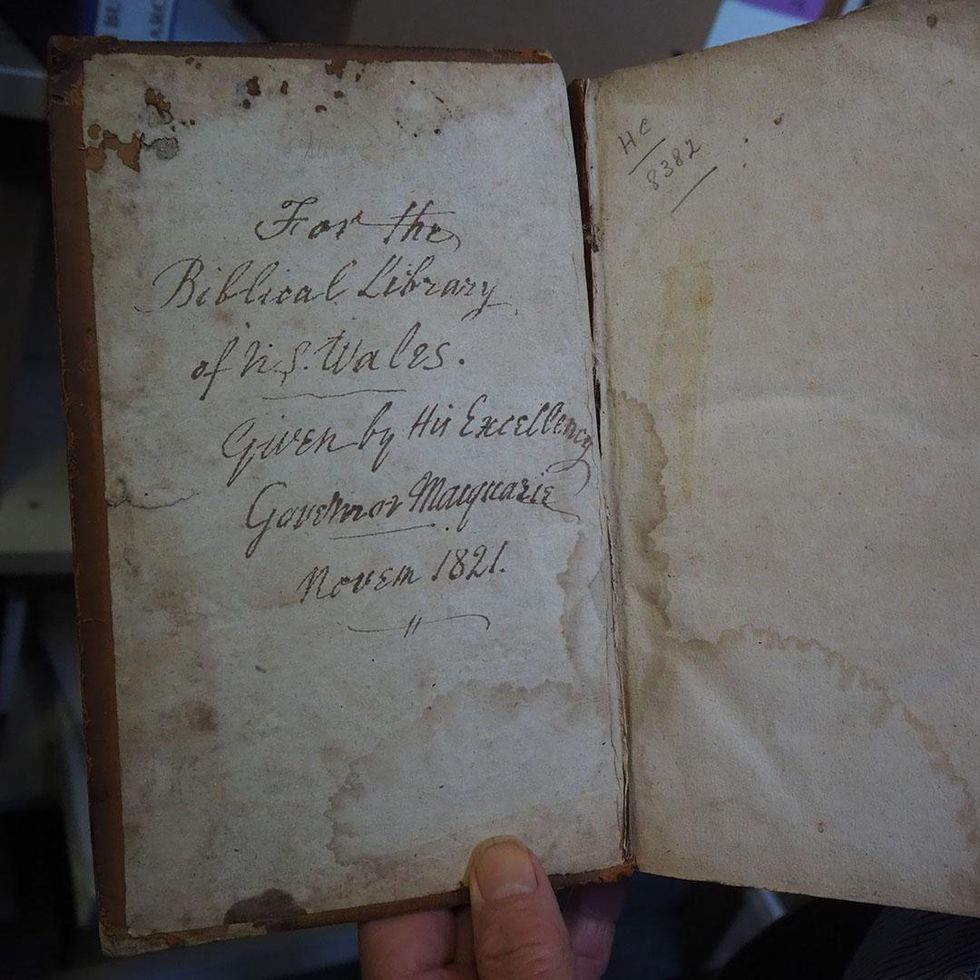 For the
Biblical Library
of N.S. Wales.
Given by His Excellency
Governor Macquarie
Novem 1821.
HC
8382